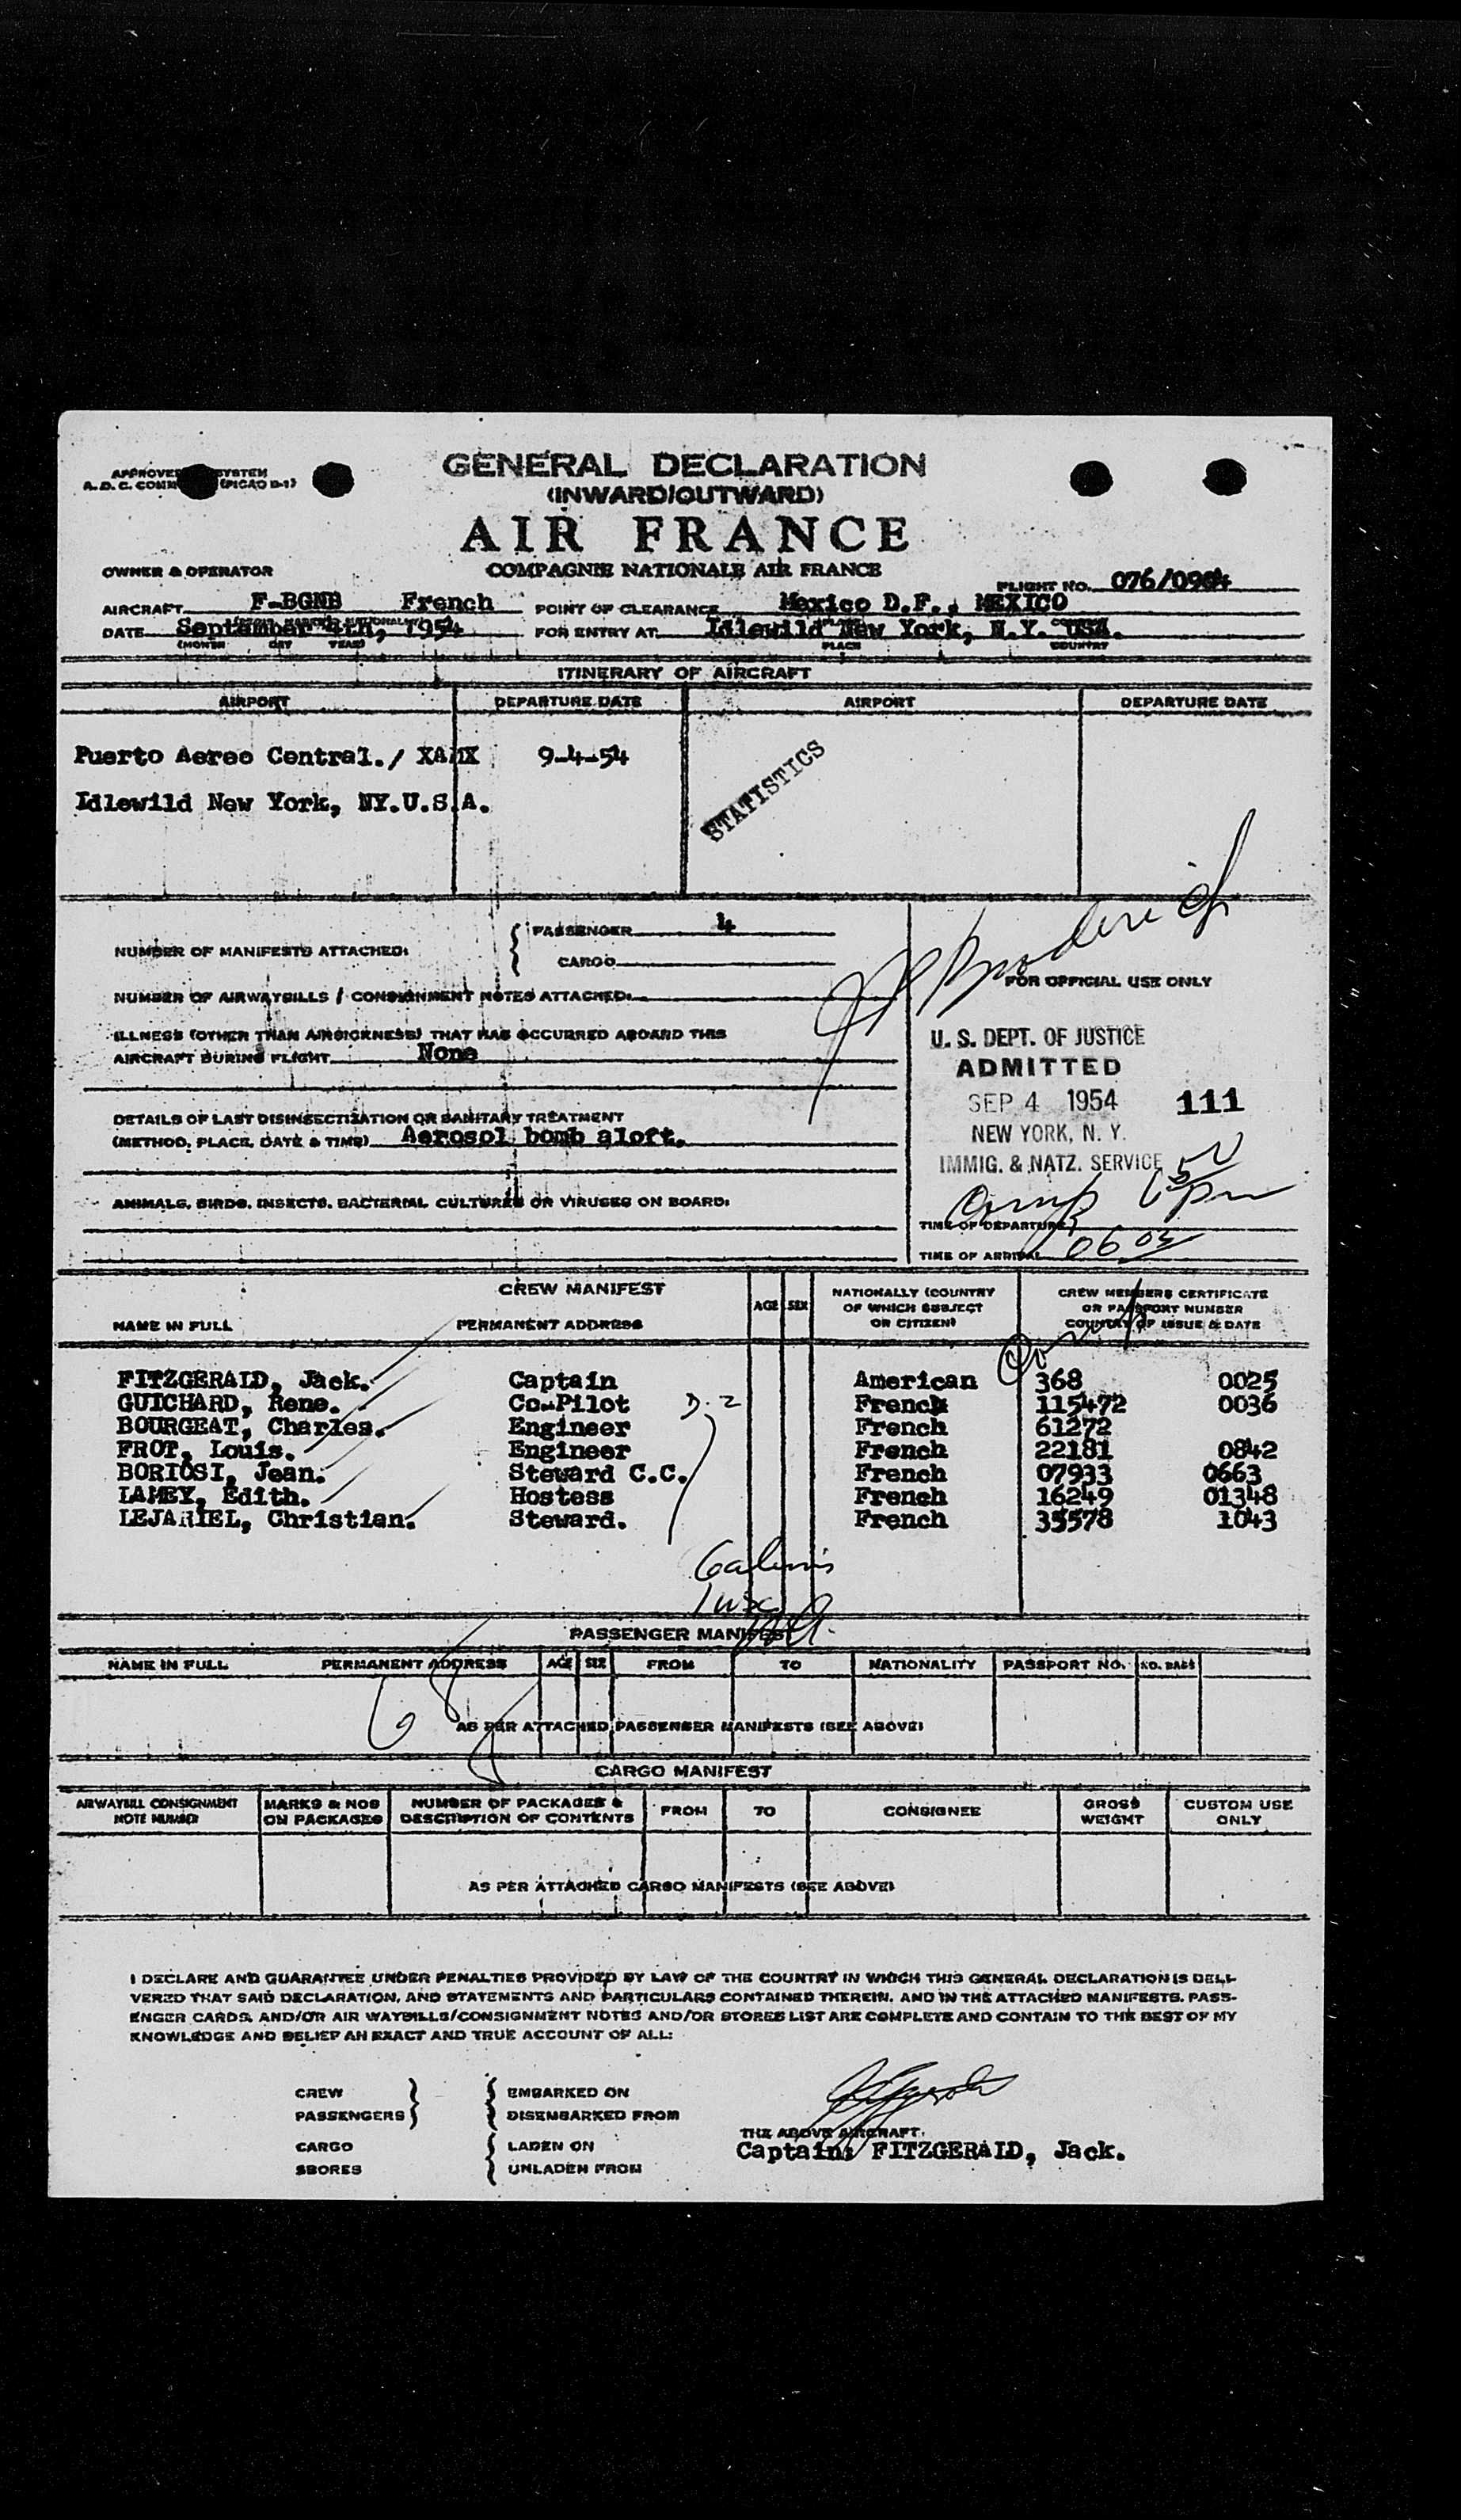 GENERAL DECLARATION
(INWARD/OUTWARD)
AIR FRANCE
COMPAGNIE NATIONALE AIR FRANCE
OWNER & OPERATOR
FLIGHT NO. 076/0904
AIRCRAFT F-BGNB French POINT OF CLEARANCE Mexico D.F., MEXICO
DATE September 4th, 1954 FOR ENTRY AT: Idlewild New York, N.Y. USA.
(MONTH DAY YEAR) PLACE COUNTRY
ITINERARY OF AIRCRAFT
AIRPORT DEPARTURE DATE AIRPORT DEPARTURE DATE
Puerto Aereo Central./ 9-4-54
STATISTICS
Idlewild New York, NY.U.S.A.
NUMBER OF MANIFESTS ATTACHED: PASSENGER 4
CARGO
NUMBER OF AIRWAYBILLS / CONSIGNMENT NOTES ATTACHED:
FOR OFFICIAL USE ONLY
ILLNESS (OTHER THAN AIRSICKNESS) THAT HAS OCCURRED ABOARD THIS
AIRCRAFT DURING FLIGHT None
U. S. DEPT. OF JUSTICE
ADMITTED
SEP 4 1954 111
NEW YORK, N. Y.
IMMIG. & NATZ. SERVICE
DETAILS OF LAST DISINSECTIZATION OR SANITARY TREATMENT
(METHOD, PLACE, DATE & TIME) Aerosol bomb aloft.
ANIMALS, BIRDS, INSECTS, BACTERIAL CULTURES OR VIRUSES ON BOARD:
TIME OF DEPARTURE
TIME OF ARRIVAL 06 03
CREW MANIFEST
NAME IN FULL PERMANENT ADDRESS AGE SEX NATIONALLY (COUNTRY OF WHICH SUBJECT OR CITIZEN) CREW MEMBERS CERTIFICATE OR PASSPORT NUMBER COUNTRY OF ISSUE & DATE
FITZGERALD, Jack. Captain American 368 0025
GUICHARD, Rene. Co-Pilot D-2 French 115472 0036
BOURGEAT, Charles. Engineer French 61272
FROT, Louis. Engineer French 22181 0842
BORIOSI, Jean. Steward C.C. French 07933 0663
LAMEY, Edith. Hostess French 16249 01348
LEJARIEL, Christian. Steward. French 35578 1043
PASSENGER MANIFEST
NAME IN FULL PERMANENT ADDRESS AGE SEX FROM TO NATIONALITY PASSPORT NO. NO. BAGS
AS PER ATTACHED PASSENGER MANIFESTS (SEE ABOVE)
CARGO MANIFEST
AIRWAYBILL CONSIGNMENT NOTE NUMBER MARKS & NOS ON PACKAGES NUMBER OF PACKAGES & DESCRIPTION OF CONTENTS FROM TO CONSIGNEE GROSS WEIGHT CUSTOM USE ONLY
AS PER ATTACHED CARGO MANIFESTS (SEE ABOVE)
I DECLARE AND GUARANTEE UNDER PENALTIES PROVIDED BY LAW OF THE COUNTRY IN WHICH THIS GENERAL DECLARATION IS DELI-
VERED THAT SAID DECLARATION, AND STATEMENTS AND PARTICULARS CONTAINED THEREIN, AND IN THE ATTACHED MANIFESTS, PASS-
ENGER CARDS, AND/OR AIR WAYBILLS/CONSIGNMENT NOTES AND/OR STORES LIST ARE COMPLETE AND CONTAIN TO THE BEST OF MY
KNOWLEDGE AND BELIEF AN EXACT AND TRUE ACCOUNT OF ALL:
CREW EMBARKED ON
PASSENGERS DISEMBARKED FROM
THE ABOVE AIRCRAFT.
CARGO LADEN ON
Captain: FITZGERALD, Jack.
SBORES UNLADEN FROM